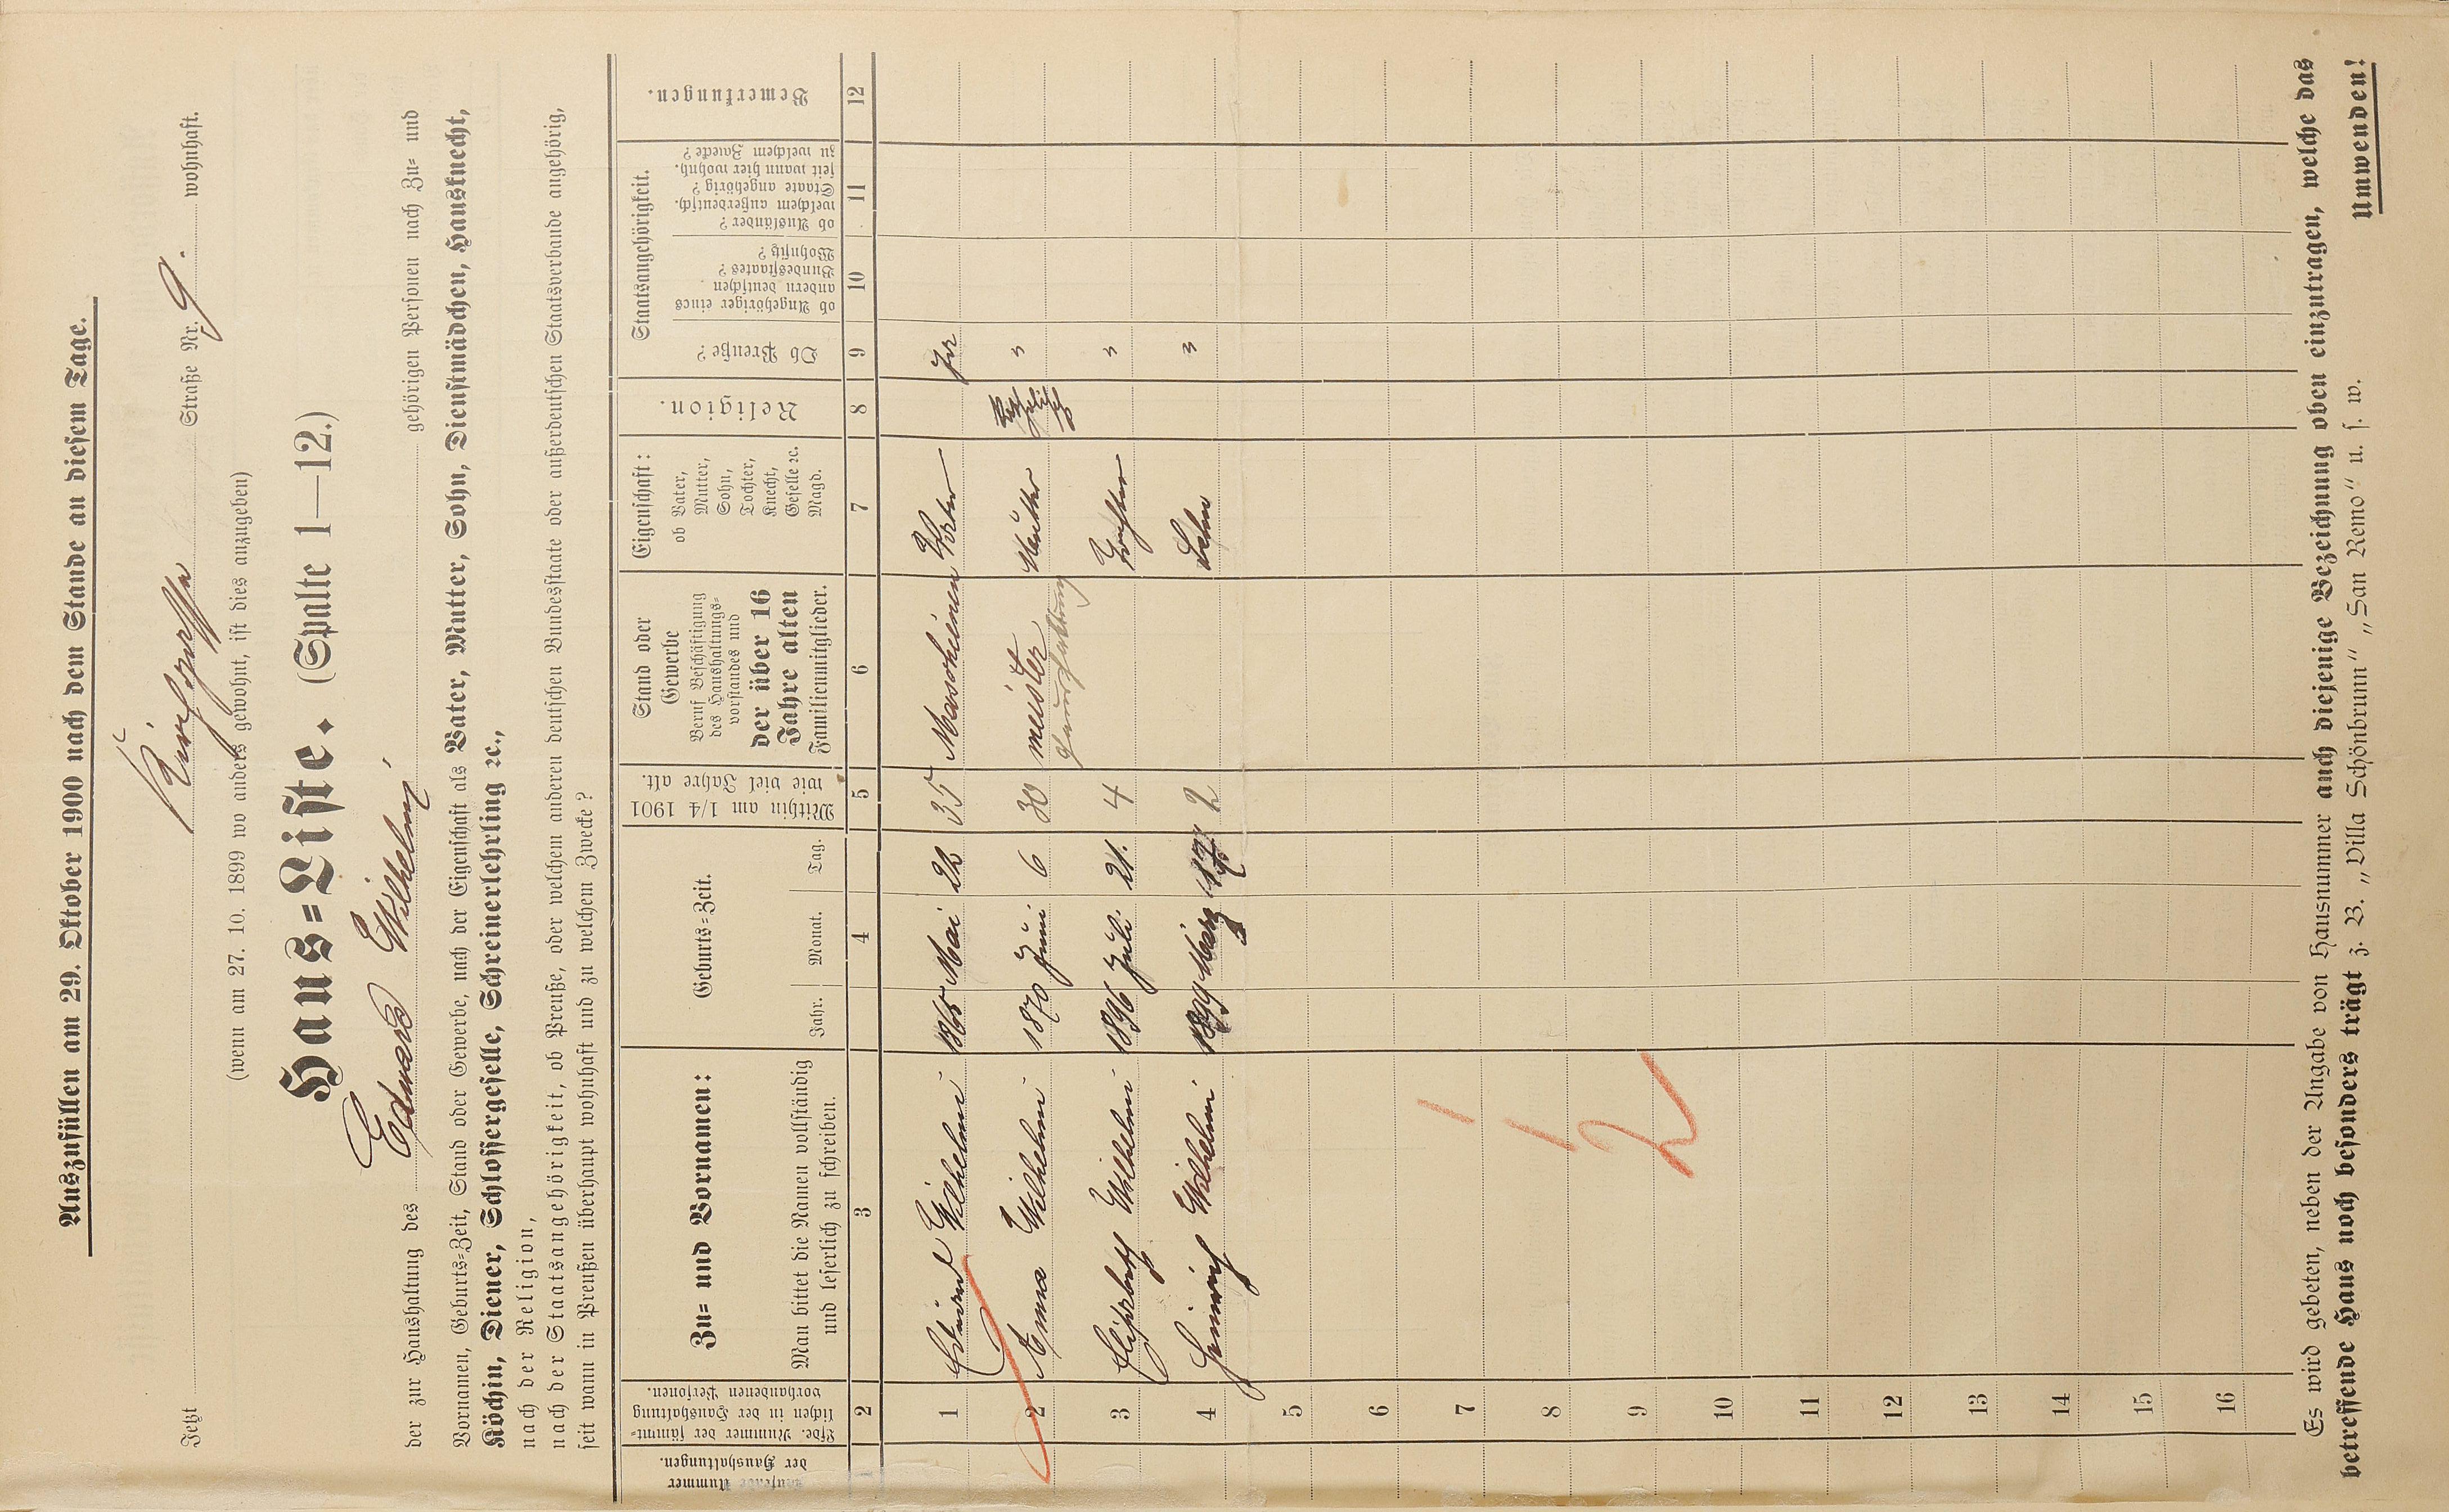 Auszufüllen am 29. Oktober 1900 nach dem Stande an diesem Tage.
Jetzt Kirchgasse Straße Nr. 9. wohnhaft.
(wenn am 27. 10. 1899 wo anders gewohnt, ist dies anzugeben)
Haus=Liste. (Spalte 1—12.)
der zur Haushaltung des Eduard Wilhelmi gehörigen Personen nach Zu= und
Vornamen, Geburts=Zeit, Stand oder Gewerbe, nach der Eigenschaft als Vater, Mutter, Sohn, Dienstmädchen, Hausknecht,
Köchin, Diener, Schlossergeselle, Schreinerlehrling ꝛc.,
nach der Religion,
nach der Staatsangehörigkeit, ob Preuße, oder welchem anderen deutschen Bundesstaate oder außerdeutschen Staatsverbande angehörig,
seit wann in Preußen überhaupt wohnhaft und zu welchem Zwecke?
Laufende Nummer
der Haushaltungen.
Lfde. Nummer der sämmt=
lichen in der Haushaltung
vorhandenen Personen.
Zu= und Vornamen:
Man bittet die Namen vollständig
und leserlich zu schreiben.
Geburts=Zeit.
Jahr. Monat. Tag.
Mithin am 1/4 1901
wie viel Jahre alt.
Stand oder
Gewerbe
Beruf Beschäftigung
des Haushaltungs=
vorstandes und
der über 16
Jahre alten
Familienmitglieder.
Eigenschaft:
ob Vater,
Mutter,
Sohn,
Tochter,
Knecht,
Geselle ꝛc.
Magd.
Religion.
Staatsangehörigkeit.
Ob Preuße?
ob Angehöriger eines
andern deutschen
Bundesstaates?
Wohnsitz?
ob Ausländer?
welchem außerdeutsch.
Staate angehörig?
seit wann hier wohnh.
zu welchem Zwecke?
Bemerkungen.
1 2 3 4 5 6 7 8 9 10 11 12
1 Eduard Wilhelmi 1865 Mai 22 35 Maschienen Vater Ja
2 Emma Wilhelmi 1870 Juni 6 30 meister Mutter "
3 Elisabeth Wilhelmi 1896 Juli 21. 4 Tochter "
4 Heinrich Wilhelmi 1899 März 2 Sohn "
5
6
7
8
9
10
11
12
13
14
15
16
2
Es wird gebeten, neben der Angabe von Hausnummer auch diejenige Bezeichnung oben einzutragen, welche das
betreffende Haus noch besonders trägt z. B. „Villa Schönbrunn" „San Remo" u. s. w.
Umwenden!